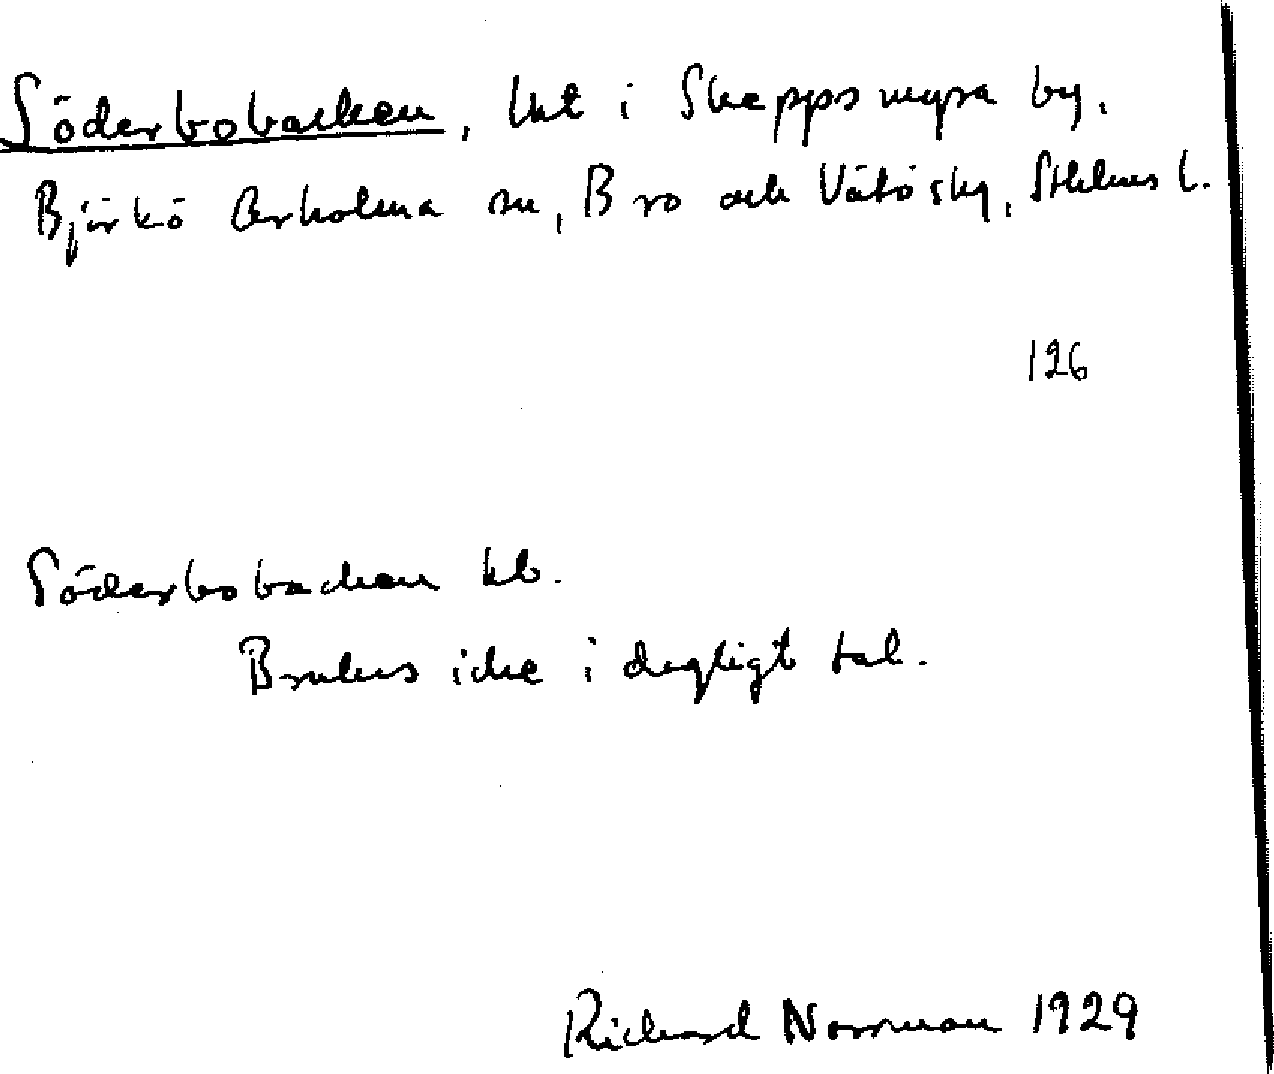 Söderbobacken, lht i Skeppsmyra by.
Björkö Arholma sn, Bro och Vätö skg, Sthlms l.
126
Söderbobacken kb.
Brukas icke i dagligt tal.
Richard Norrman 1929